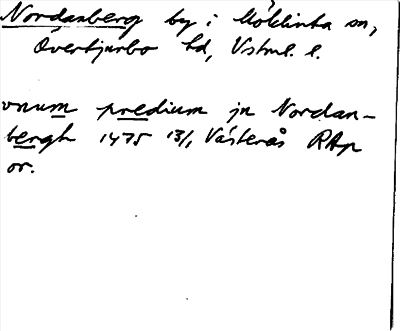 Nordanberg by i Möklinta sn,
Övertjurbo hd, Vstml. l.
vnum predium jn Nordan-
bergh 1475 13/1 Västerås RAp
or.